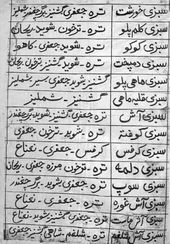 سبزی خورشت تره - جعفری گشنیز برگ چغندر شنبلیله
سبزی کلم پلو تره - ترخون - شوید - ریحان
سبزی کوکو تره - شوید - جعفری - کاهو
سبزی دمپخت تره - شوید - گشنیز - جعفری
سبزی ماهی پلو گشنیز شوید جعفری سیر شنبلیله
سبزی قلیه ماهی گشنیز - شنبلیله
سبزی آش تره - جعفری - گشنیز - برگ چغندر
سبزی کوفته تره - شوید - گشنیز - جعفری
سبزی کرفس کرفس - جعفری - نعناع
سبزی دلمه تره - ترخون مرزه جعفری ریحان
سبزی سوپ تره - شوید - جعفری - برگ چغندر
سبزی آش تره - جعفری - نعناع
سبزی آش تره - جعفری گشنیز شوید - نعناع
سبزی آش شلغم تره - شلغم جعفری گشنیز